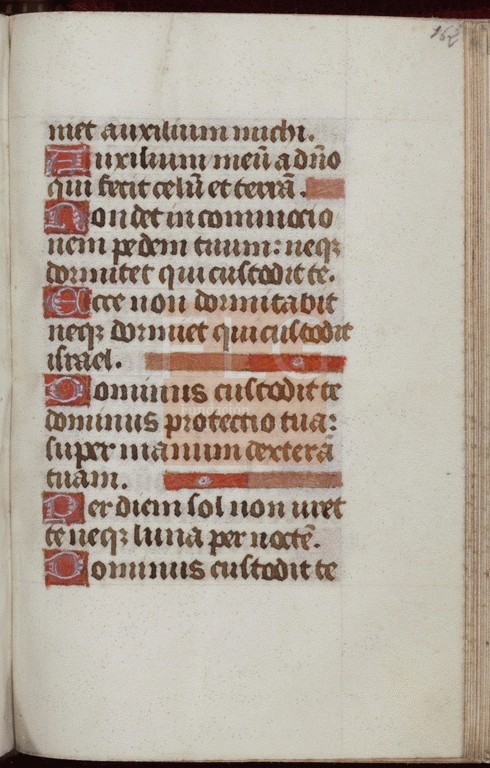 162
niet auxilium michi.
Auxilium meū a dn̄o
qui fecit celū et terrā.
Non det in commocio
nem pedem tuum: neqꝫ
dormitet qui custodit te.
Ecce non dormitabit
neqꝫ dormiet qui custodit
israel.
Dominus custodit te
dominus protectio tua:
super manum dexterā
tuam.
Per diem sol non uret
te neqꝫ luna per noctē.
Dominus custodit te